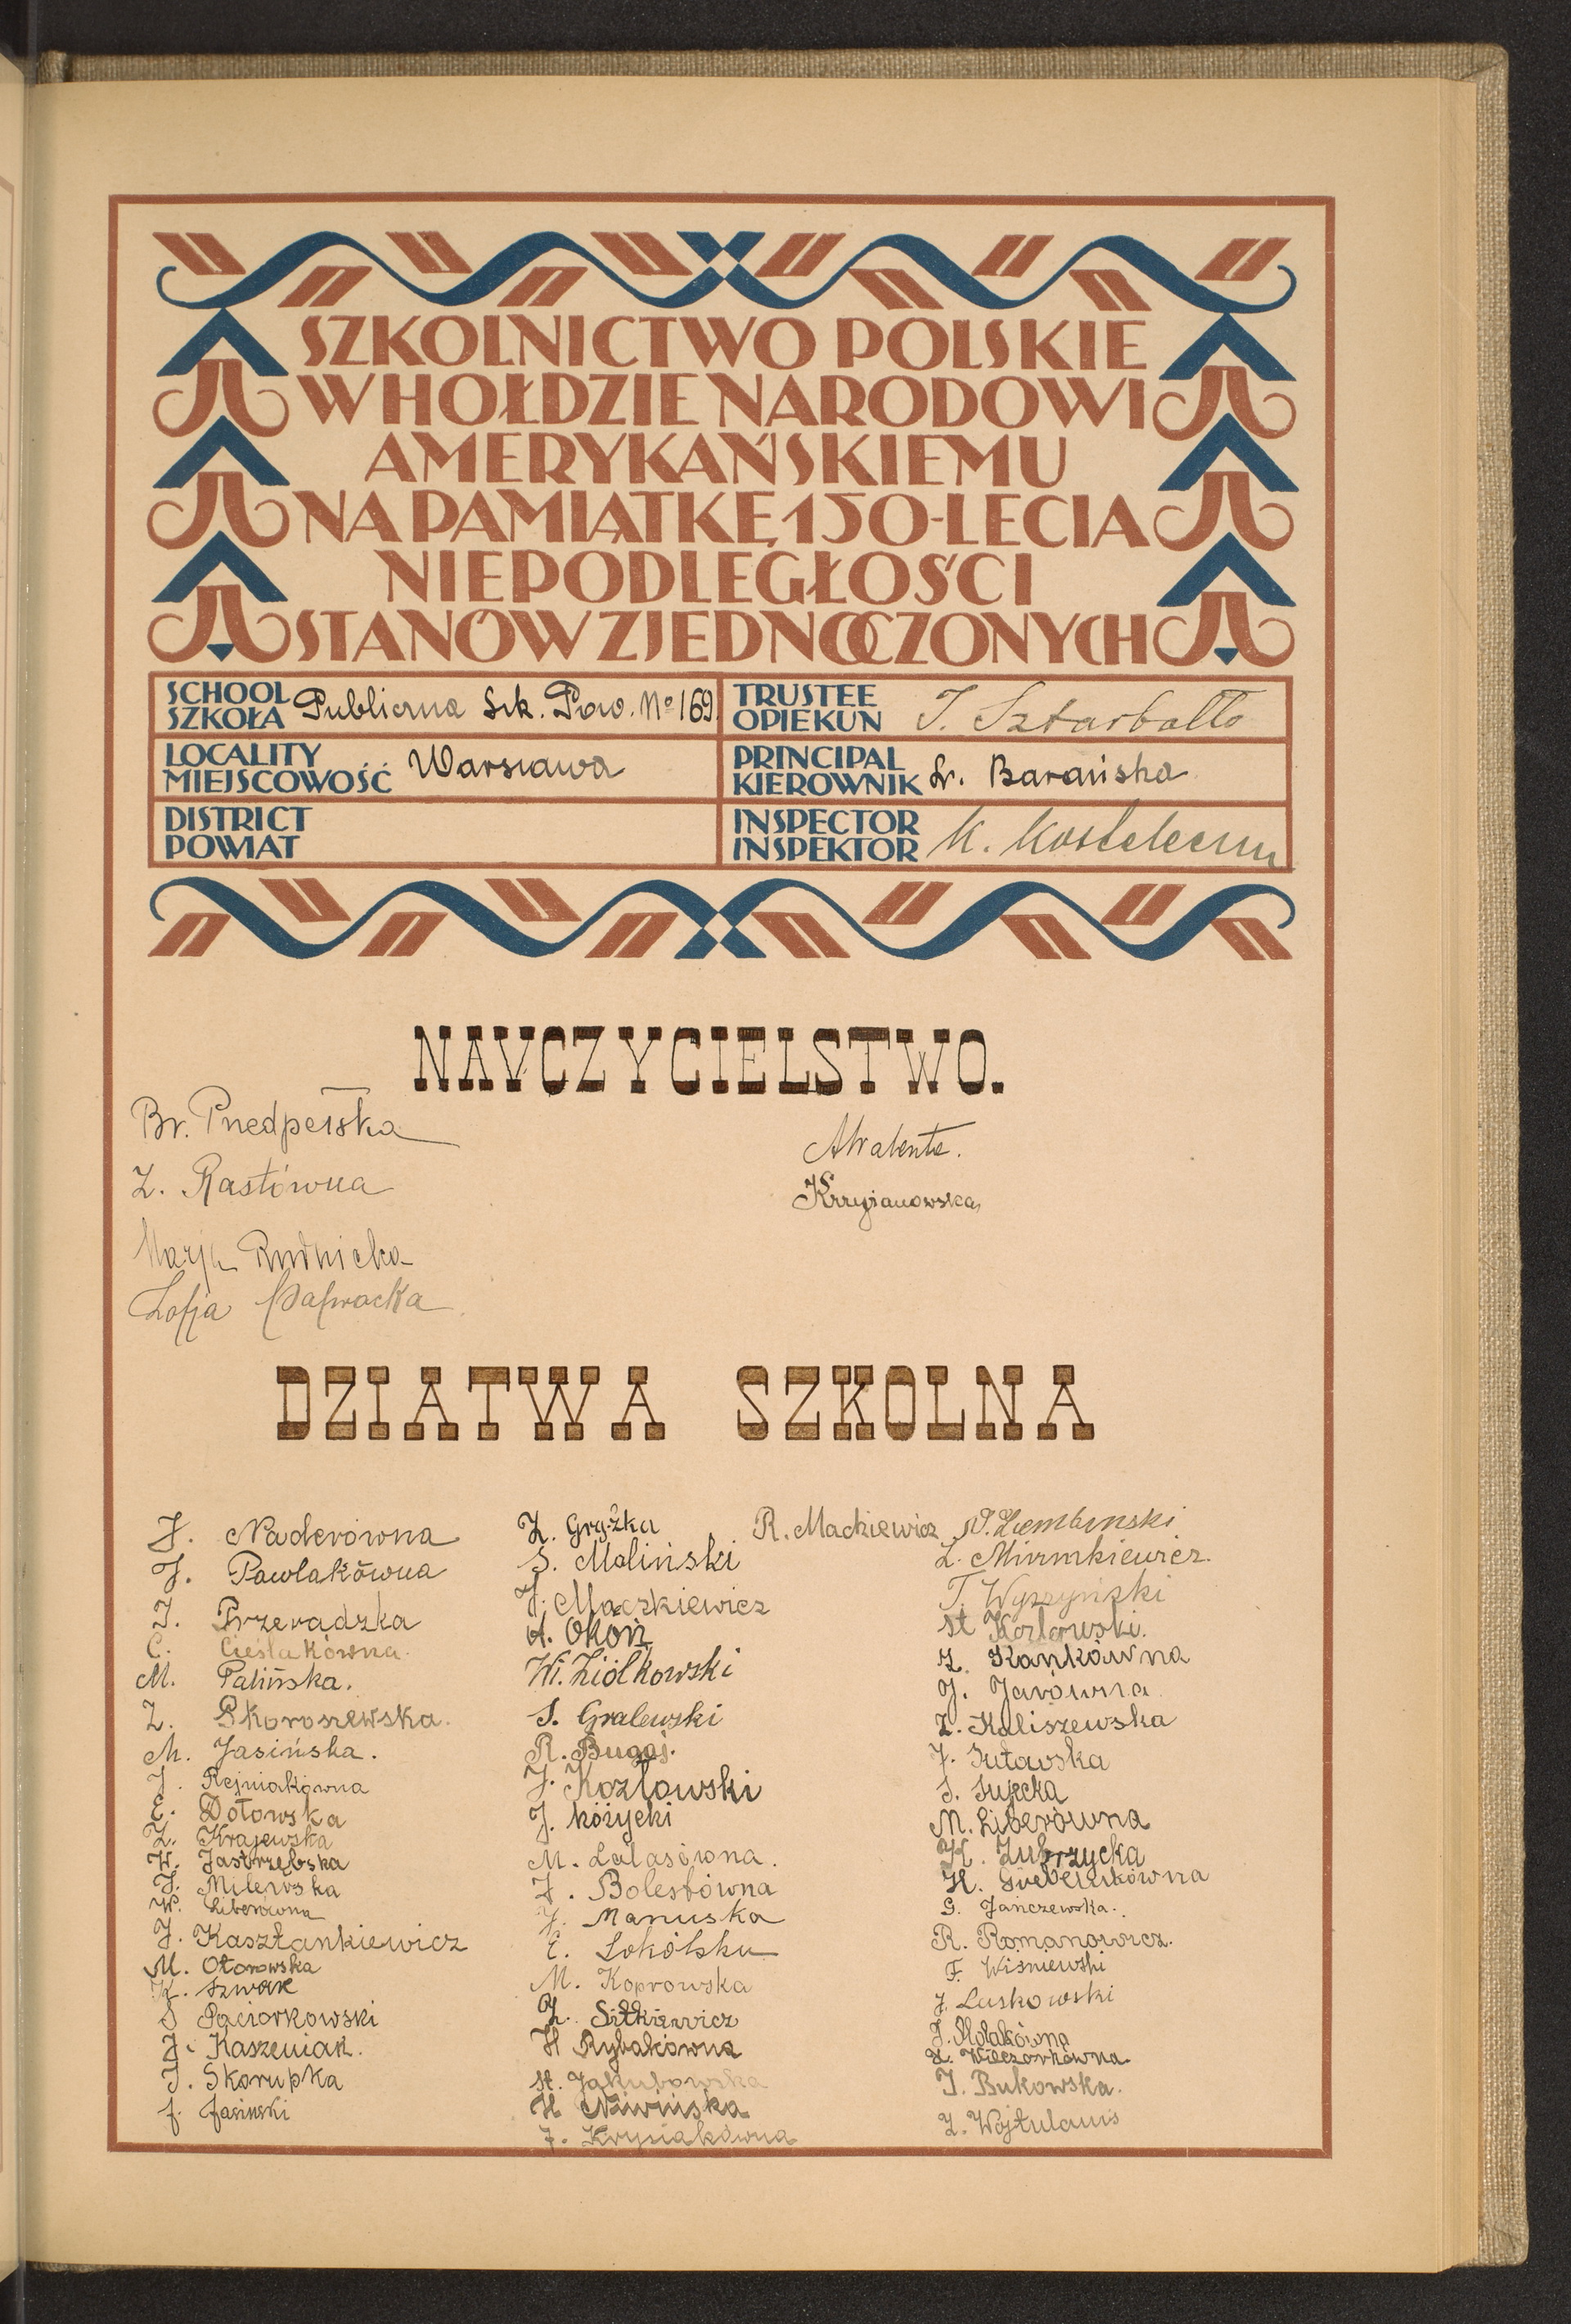 SZKOLNICTWO POLSKIE
W HOŁDZIE NARODOWI
AMERYKAŃSKIEMU
NA PAMIĄTKĘ 150-LECIA
NIEPODLEGŁOŚCI
STANÓW ZJEDNOCZONYCH
SCHOOL
SZKOŁA
Publiczna Szk. Pow. № 169
TRUSTEE
OPIEKUN
J. Sztarbałło
LOCALITY
MIEJSCOWOŚĆ
Warszawa
PRINCIPAL
KIEROWNIK
Barańska
DISTRICT
POWIAT
INSPECTOR
INSPEKTOR
K.
NAUCZYCIELSTWO.
Br. Przedpełska
Z. Rastówna
Marja Rudnicka
Zofja
Krzyżanowska
DZIATWA SZKOLNA
J. Naderówna
J. Pawlakówna
J. Przeradzka
C. Cieślakówna.
M. Palińska.
Z. Skoroszewska.
M. Jasińska.
J. Rejniakówna
E. Dołowska
Z. Krajewska
W. Jastrzębska
J. Milewska
W. Liberówna
J. Kasztankiewicz
M. Otorowska
K. Szwak
S Paciorkowski
J. Kaszeniak.
J. Skorupka
J. Jasiński
Z. Gryżka
S. Maliński
J. Maczkiewicz
A. Okoń
W. Ziółkowski
S. Gralewski
R. Bugaj.
J. Kozłowski
J. Kożycki
M. Lalasówna.
J. Bolestówna
J. Manuska
E. Sokólska
M. Koprowska
Z. Sitkiewicz
H Rybakówna
St. Jakubowska
H Niwińska
J. Krysiakówna
R. Mackiewicz
Ziembinski
L.
T. Wyszyński
St Kozłowski.
Z. Kankówna
J. Jarówna
Z. Kaliszewska
J.
S. Sujecka
M. Liberówna
K. Zubrzycka
H.
G. Janczewska.
R. Romanowicz.
F. Wiśniewski
J. Laskowski
J. Polakówna
Z. Wieczorkówna.
J. Bukowska.
Z. Wojtulanis